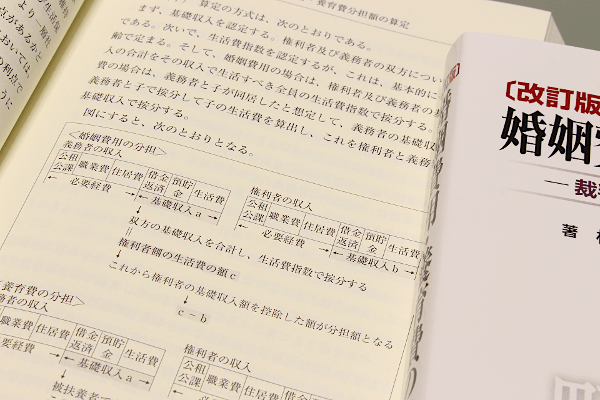 ・養育費分担額の算定
算定の方式は、次のとおりである。
まず、基礎収入を認定する。権利者及び義務者の双方につい
て、次いで、生活費指数を認定するが、これは、基本的に
齢で定まる。そして、婚姻費用の場合は、権利者及び義務者の基
入の合計をその収入で生活すべき全員の生活費指数で按分する。
費の場合は、義務者と子が同居したと想定して、義務者の基礎収
義務者と子で按分して子の生活費を算出し、これを権利者と義務
基礎収入で按分する。
図にすると、次のとおりとなる。
<婚姻費用の分担>
義務者の収入
公租公課 職業費 住居費 借金返済 預貯金 生活費
← 必要経費 → ← 基礎収入a →
権利者の収入
公租公課 職業費 住居費 借金返済 預貯金 生活費
← 必要経費 → ← 基礎収入b →
双方の基礎収入を合計し、生活費指数で按分する
‖
権利者側の生活費の額c
これから権利者の基礎収入額を控除した額が分担額となる
c－b
養育費の分担>
務者の収入
職業費 住居費 借金返済 預貯金 生活費
要経費 → ← 基礎収入a →
権利者の収入
公租公課 職業費 住居費 借金返済 預貯金
被扶養者で
〔改訂版
婚姻
―裁
著